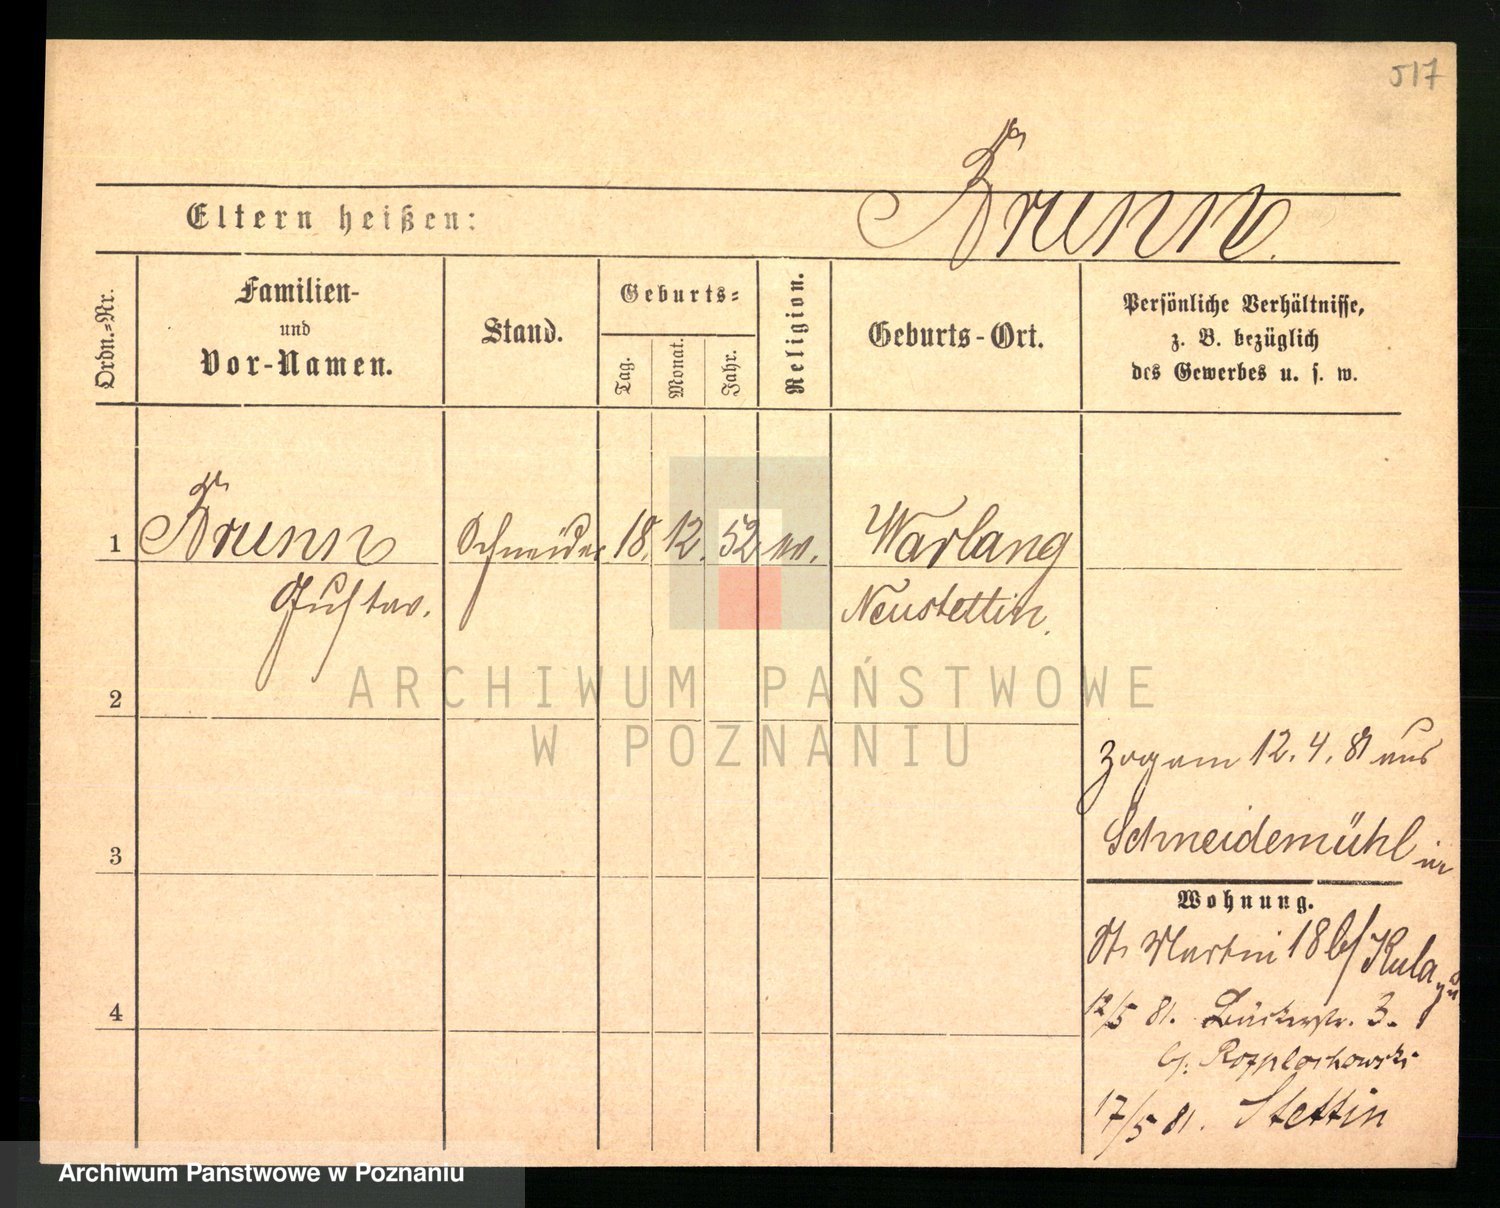 517
Brunn.
Eltern heißen:
Ordn.-Nr.
Familien-
und
Vor-Namen.
Stand.
Geburts-
Tag.
Monat.
Jahr.
Religion.
Geburts-Ort.
Persönliche Verhältnisse,
z. B. bezüglich
des Gewerbes u. s. w.
1 Brunn Schneider 18. 12. 52 ev. Warlang
Gustav. Neustettin.
2
ARCHIWUM PAŃSTWOWE
W POZNANIU
zog am 12.4.81 aus
Schneidemühl
3
Wohnung.
St. Martin 18 b/ Kula
4
12/5 81. Bäckerstr. 3.
b.
17/5 81. Stettin
Archiwum Państwowe w Poznaniu